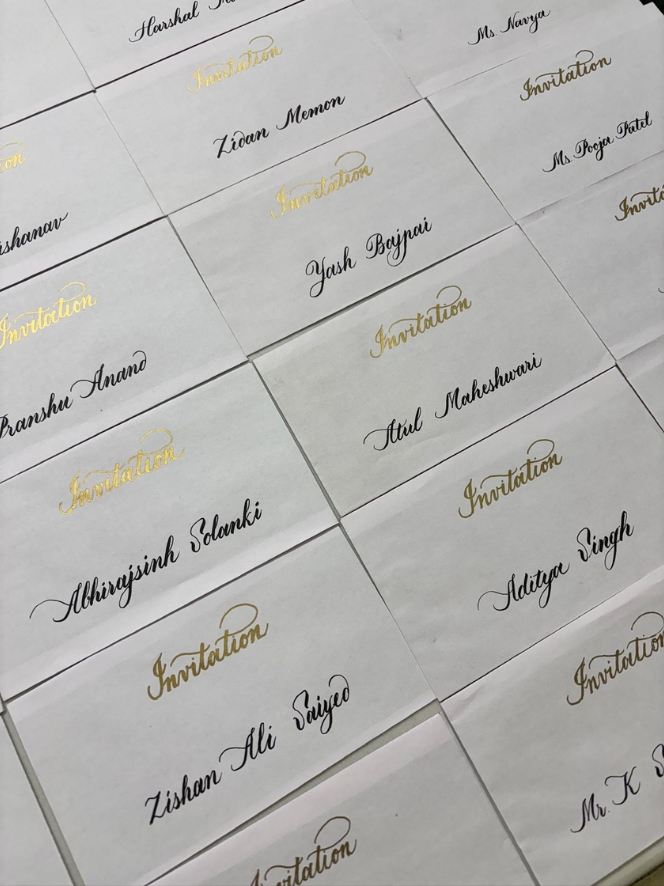 Harshal
Ms. Navya
Invitation
Zidan Memon
Invitation
Ms. Pooja Patel
Invitation
Yash Bajpai
Invitation
Pranshu Anand
Invitation
Atul Maheshwari
Invitation
Abhirajsinh Solanki
Invitation
Aditya Singh
Invitation
Zishan Ali Saiyed
Invitation
Mr. K
Invitation